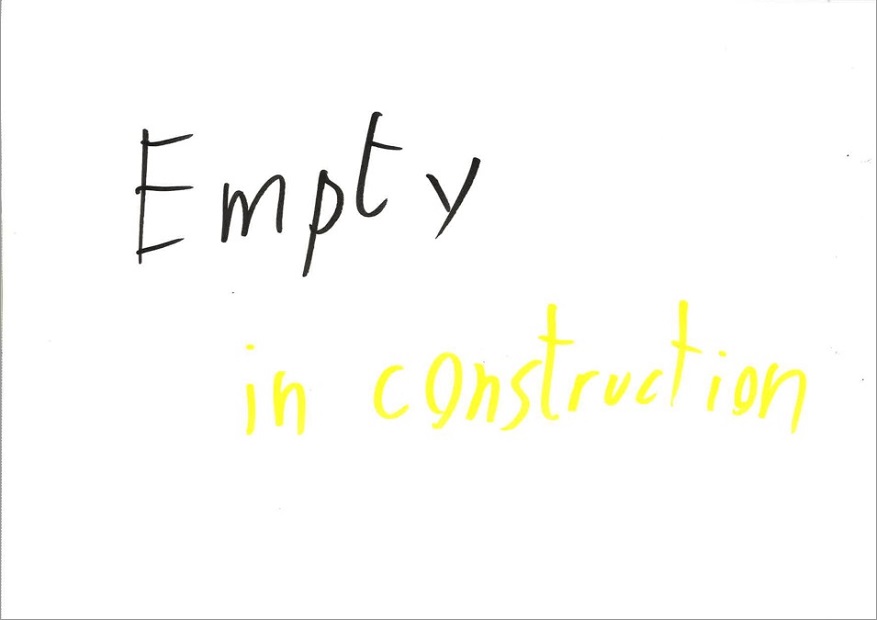 Empty
in construction